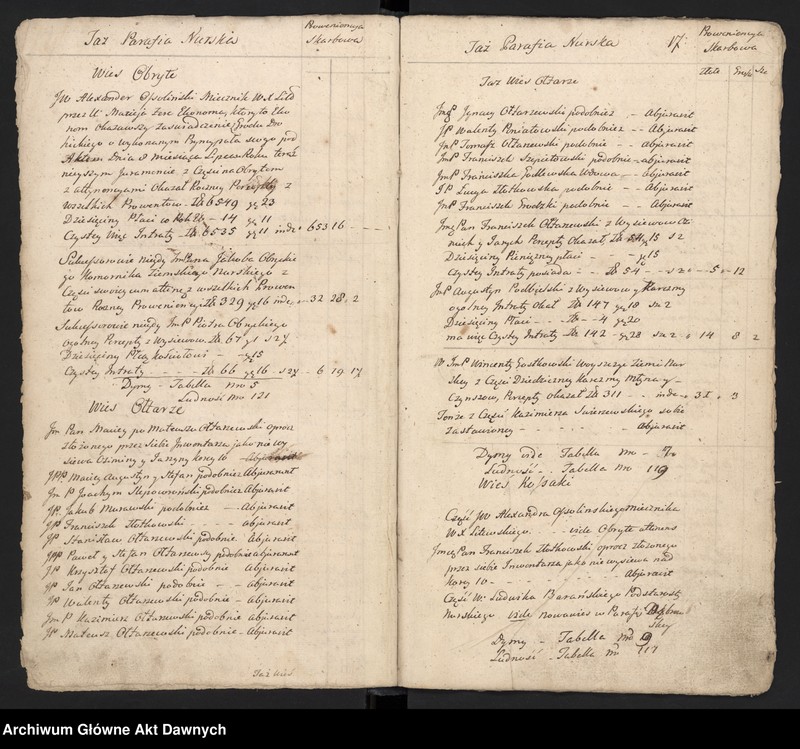 Taż Parafia Nurska
Proweniencya
Skarbowa
Wieś Obryte
JW Alexander Ossoliński Miecznik WX Litt
przez U. Macieja Zerę Ekonoma, który to Eko
nom okazawszy Zaświadczenie Grodu Dro
hickiego o wykonanym Pryncypała swego pod
Aktem Dnia 8 miesiąca Lipca Roku teraz
nieyszym Juramencie z Części na Obrytem
z attynencyami Okazał Roczney Percepty z
wszelkich Prowentów Zł 6549 gr 23
Dziesięciny Płaci w Kok Zł - 14 gr 11
Czystey więc Intraty - Zł 6535 gr 11 inde 653 16
Sukcessorowie niegdy JmPana Jakuba Obryckie
go Komornika Ziemskiego Nurskiego z
Części swoiey cum attine z wszelkich Prowen
tów Roczney Proweniencyi Zł 329 gr 16 inde 32 28 2
Sukcessorowie niegdy JmP Piotra Obryckiego
ogólney Percepty z Wysiewów Zł 67 gr 1 s 2½
Dziesięciny Płacą kościołowi - gr 15
Czystey Intraty - - - Zł 66 gr 16 s 2½ - 6 19 17
Dymy - Tabella no 5
Ludność no 121
Wieś Ołtarze
Jm Pan Maciey po Mateuszu Ołtarzewski oprócz
złożonego przez siebie Inwentarza jako nie wy
siewa Oziminy y Jarzyny korcy 10 - Abjuravit
JPP Maciey Augustyn y Stefan podobnież Abjurarunt
Jm P Joachym podobnież Abjuravit
JP. Jakub Murawski podobnież - Abjuravit
JP Franciszek Złotkowski - - - abjuravit
JP Stanisław Ołtarzewski podobnie Abjuravit
JPP Paweł y Stefan Ołtarzewscy podobnie abjurarunt
JP Krzysztof Ołtarzewski podobnie Abjuravit
JP Jan Ołtarzewski podobnie - - Abjuravit
JP Walenty Ołtarzewski podobnie - Abjuravit
Jm P Kazimierz Ołtarzewski podobnie abjuravit
JP Mateusz Ołtarzewski podobnie - Abjuravit
Taż Wieś
Taż Parafia Nurska
17
Prowenienya
Skarbowa
Złote Grosze Sze
Taż Wieś Ołtarze
JmP Ignacy Ołtarzewski podobnież - Abjuravit
JP Walenty Poniatowski podobnież - - Abjuravit
JmP Tomasz Ołtarzewski podobnie - - abjuravit
JmP Franciszek Szepietowski podobnie - abjuravit
JmP Franciszka Godlewska Wdowa - - Abjuravit
JP Łucya Złotkowska podobnie - - Abjuravit
JmP Franciszek Grodzki podobnie - - Abjuravit
Jmć Pan Franciszek Ołtarzewski z Wysiewów Ozi
mich y Jarych Percepty Okazał, Zł 54 gr 15 s 2
Dziesięciny Pieniężney płaci - - - gr 15
Czystey Intraty posiada - - - Zł 54 - - s 2 - 5 - 12
JmP Augustyn Podbielski z Wysiewów y Karczmy
ogólney Intraty Okał Zł 147 gr 18 sz 2
Dziesięciny Płaci - - Zł - 4 gr 20
ma więc Czystey Intraty Zł 142 - gr 28 sz 2 14 8 2
W JmP Wincenty Gostkowski Woyszcze Ziemi Nur
skiey z Części Dziedziczney Karczmy Młyna y
Czynszów, Percepty okazał Zł 311 - - inde 31 3
Tenże z Części Kazimierza Swierżewskiego sobie
Zastawioney - - - - - Abjuravit
Dymy vide Tabella no - 7
Ludność - Tabella no 119
Wieś Kossaki
Część JW Alexandra Ossolińskiego Miecznika
WX Litewskiego. - - vide Obryte attinens
Jmć Pan Franciszek Złotkowski oprócz złożonego
przez siebie Inwentarza jako nie wysiewa nad
korcy 10 - - - - - Abjuravit
Część W. Ludwika Barańskiego Podstarosty
Nurskiego vide Nowawieś w Parafi Dąbrow
skiey
Dymy - Tabella no 9
Ludność - Tabella no 117
Archiwum Główne Akt Dawnych